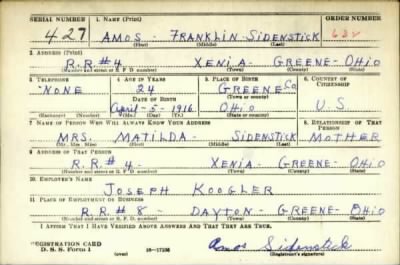 SERIAL NUMBER 1. NAME (Print) ORDER NUMBER
427 AMOS - FRANKLIN SIDENSTICK
(First) (Middle) (Last)
2. ADDRESS (Print)
R.R.#4 XENIA - GREENE - OHIO
(Number and street or R. F. D. number) (Town) (County) (State)
3. TELEPHONE 4. AGE IN YEARS 5. PLACE OF BIRTH 6. COUNTRY OF CITIZENSHIP
NONE 24 GREENE Co
DATE OF BIRTH (Town or county)
April - 5 - 1916 OHIO U S
(Exchange) (Number) (Mo.) (Day) (Yr.) (State or country)
7. NAME OF PERSON WHO WILL ALWAYS KNOW YOUR ADDRESS 8. RELATIONSHIP OF THAT PERSON
MRS. MATILDA - SIDENSTICK MOTHER
(Mr., Mrs., Miss) (First) (Middle) (Last)
9. ADDRESS OF THAT PERSON
R.R.#4 - XENIA - GREENE - OHIO
(Number and street or R. F. D. number) (Town) (County) (State)
10. EMPLOYER'S NAME
JOSEPH KOOGLER
11. PLACE OF EMPLOYMENT OR BUSINESS
R.R.#8 - DAYTON - GREENE - OHIO
(Number and street or R. F. D. number) (Town) (County) (State)
I AFFIRM THAT I HAVE VERIFIED ABOVE ANSWERS AND THAT THEY ARE TRUE.
REGISTRATION CARD
D. S. S. Form 1 (over) 16-17105 Amos Sidenstick
(Registrant's signature)